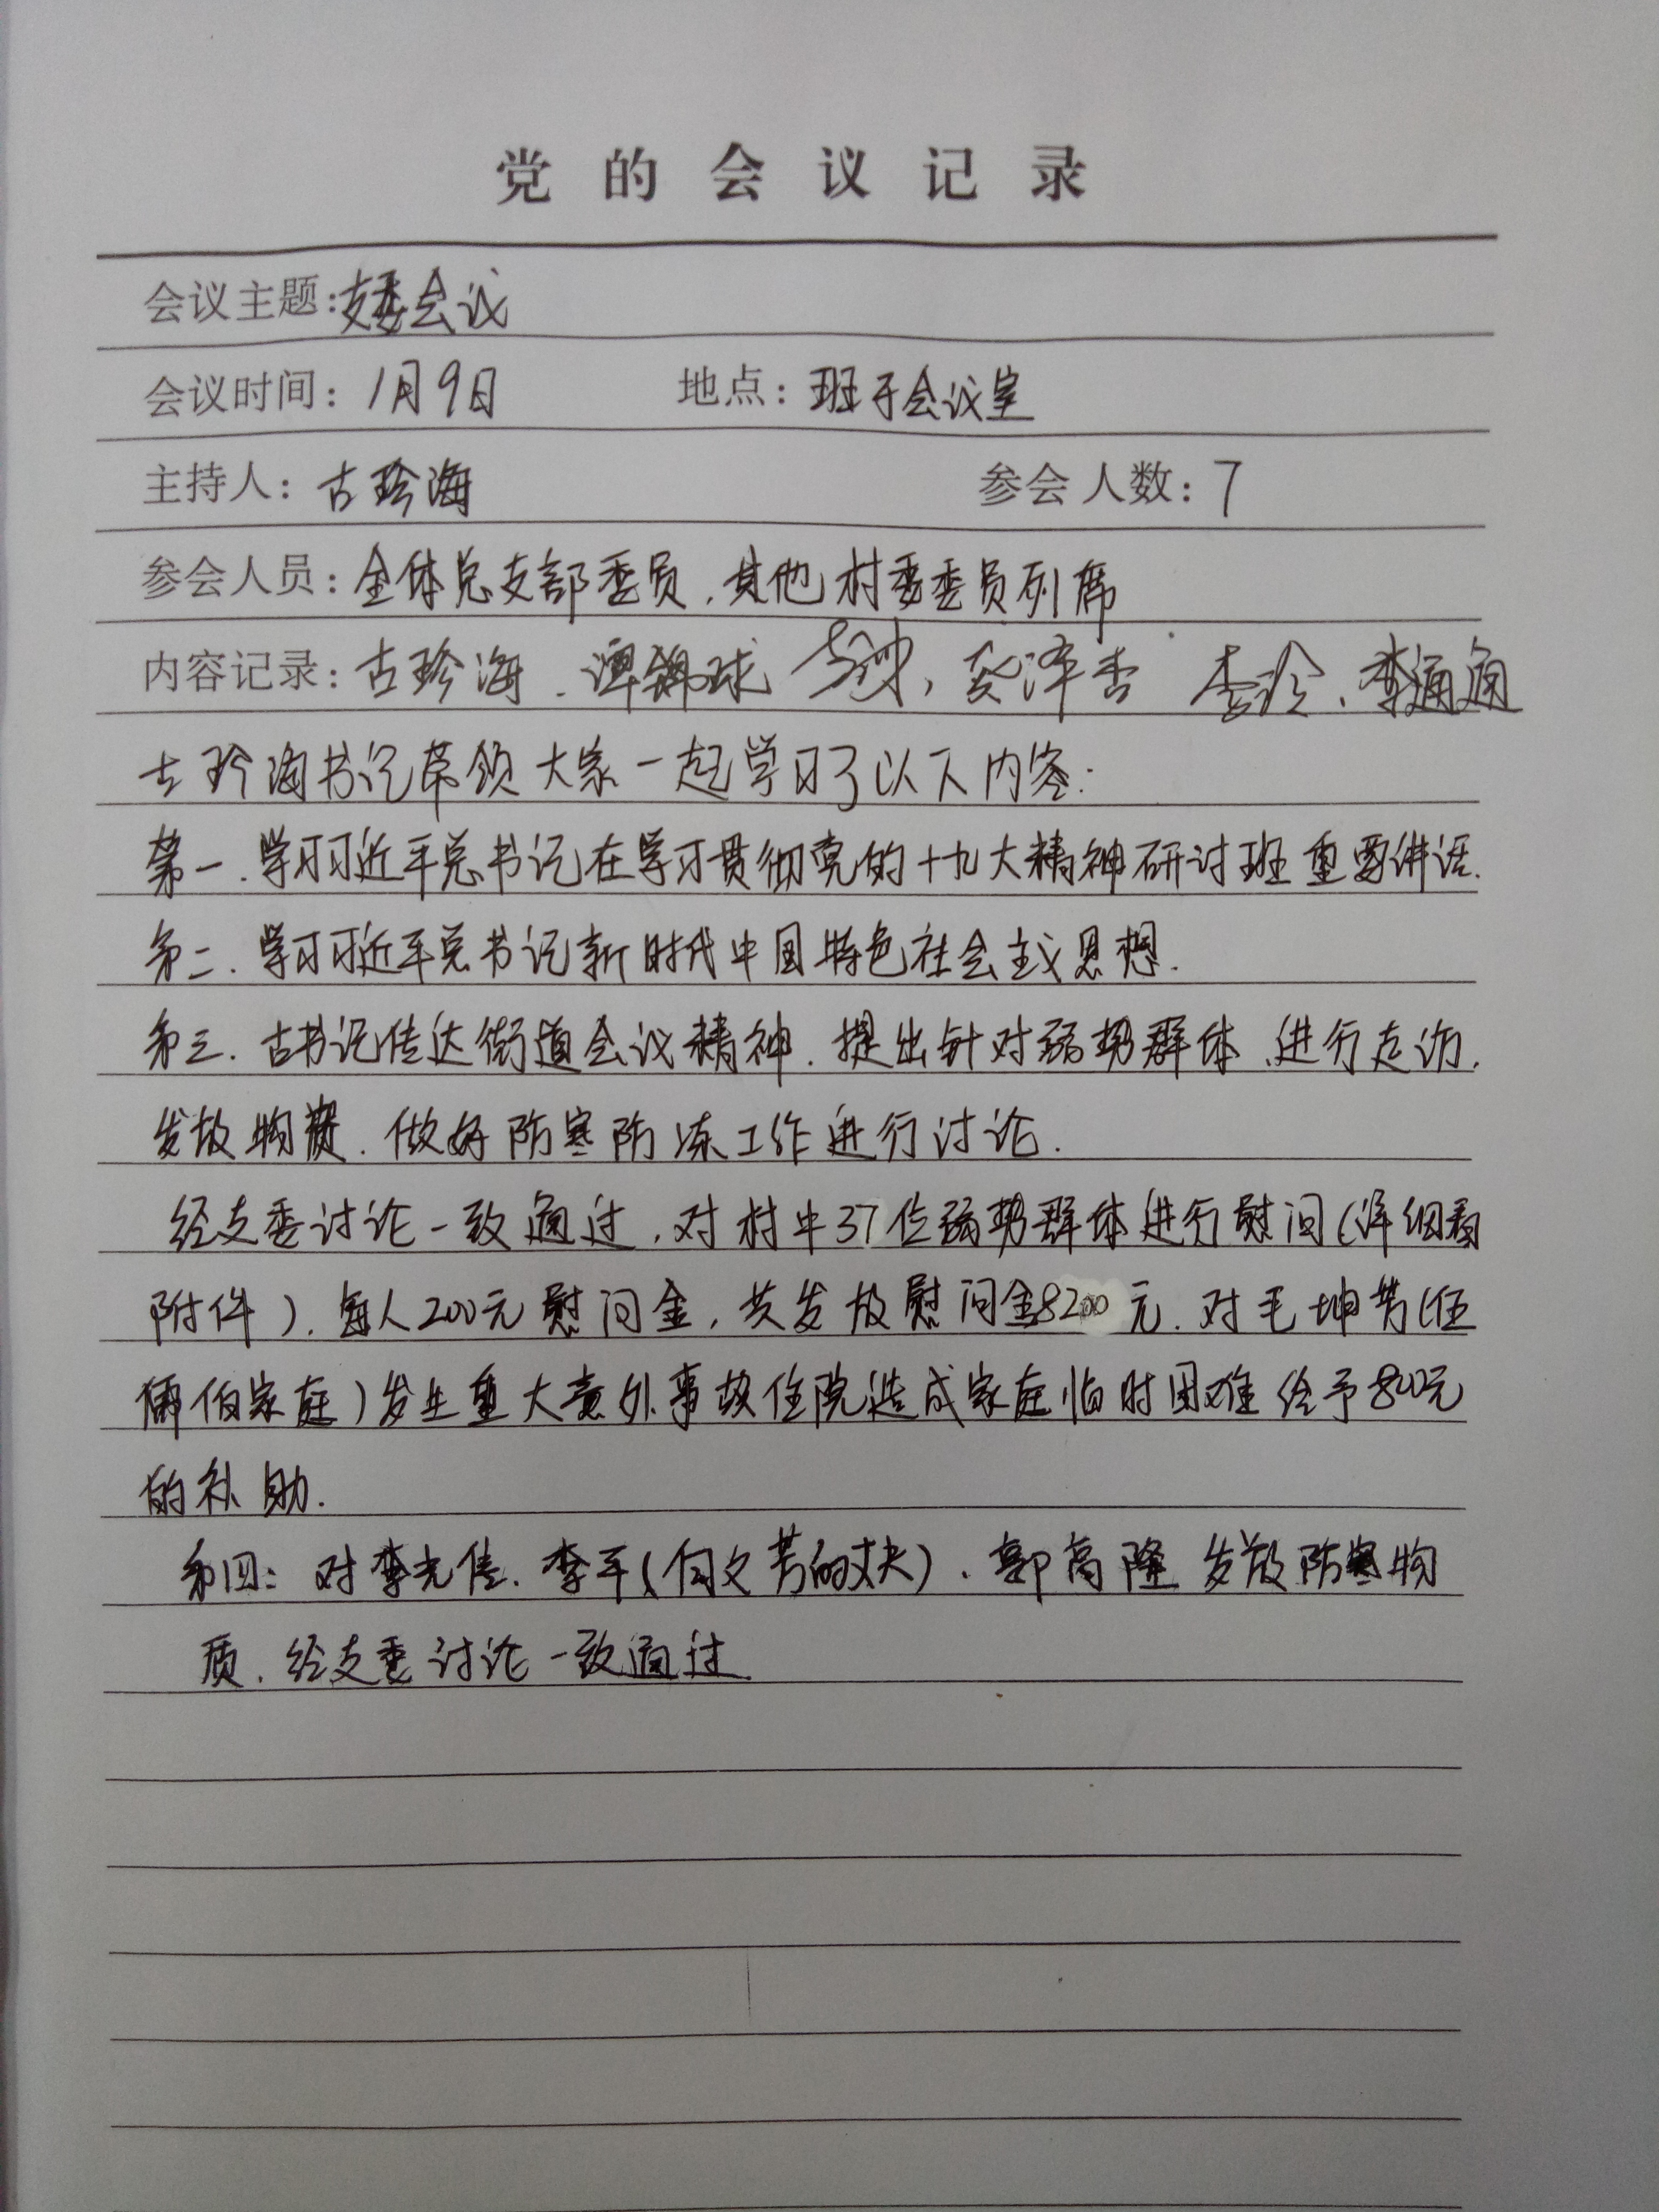 党的会议记录
会议主题:支委会议
会议时间:1月9日 地点:班子会议室
主持人:古珍海 参会人数:7
参会人员:全体总支部委员,其他村委委员列席
内容记录:古珍海、谭锦球 李玲、李通通
古珍海书记带领大家一起学习了以下内容:
第一.学习习近平总书记在学习贯彻党的十九大精神研讨班重要讲话.
第二.学习习近平总书记新时代中国特色社会主义思想.
第三.古书记传达街道会议精神.提出针对弱势群体、进行走访,
发放物资.做好防寒防冻工作进行讨论.
经支委讨论一致通过,对村中37位弱势群体进行慰问(详细看
附件).每人200元慰问金,共发放慰问金8200元.对毛坤芳(伍
伯家庭)发生重大意外事故住院造成家庭临时困难给予800元
的补助.
第四:对李光佳.李平(何文芳的丈夫)、郭高隆发放防寒物
质.经支委讨论一致通过.